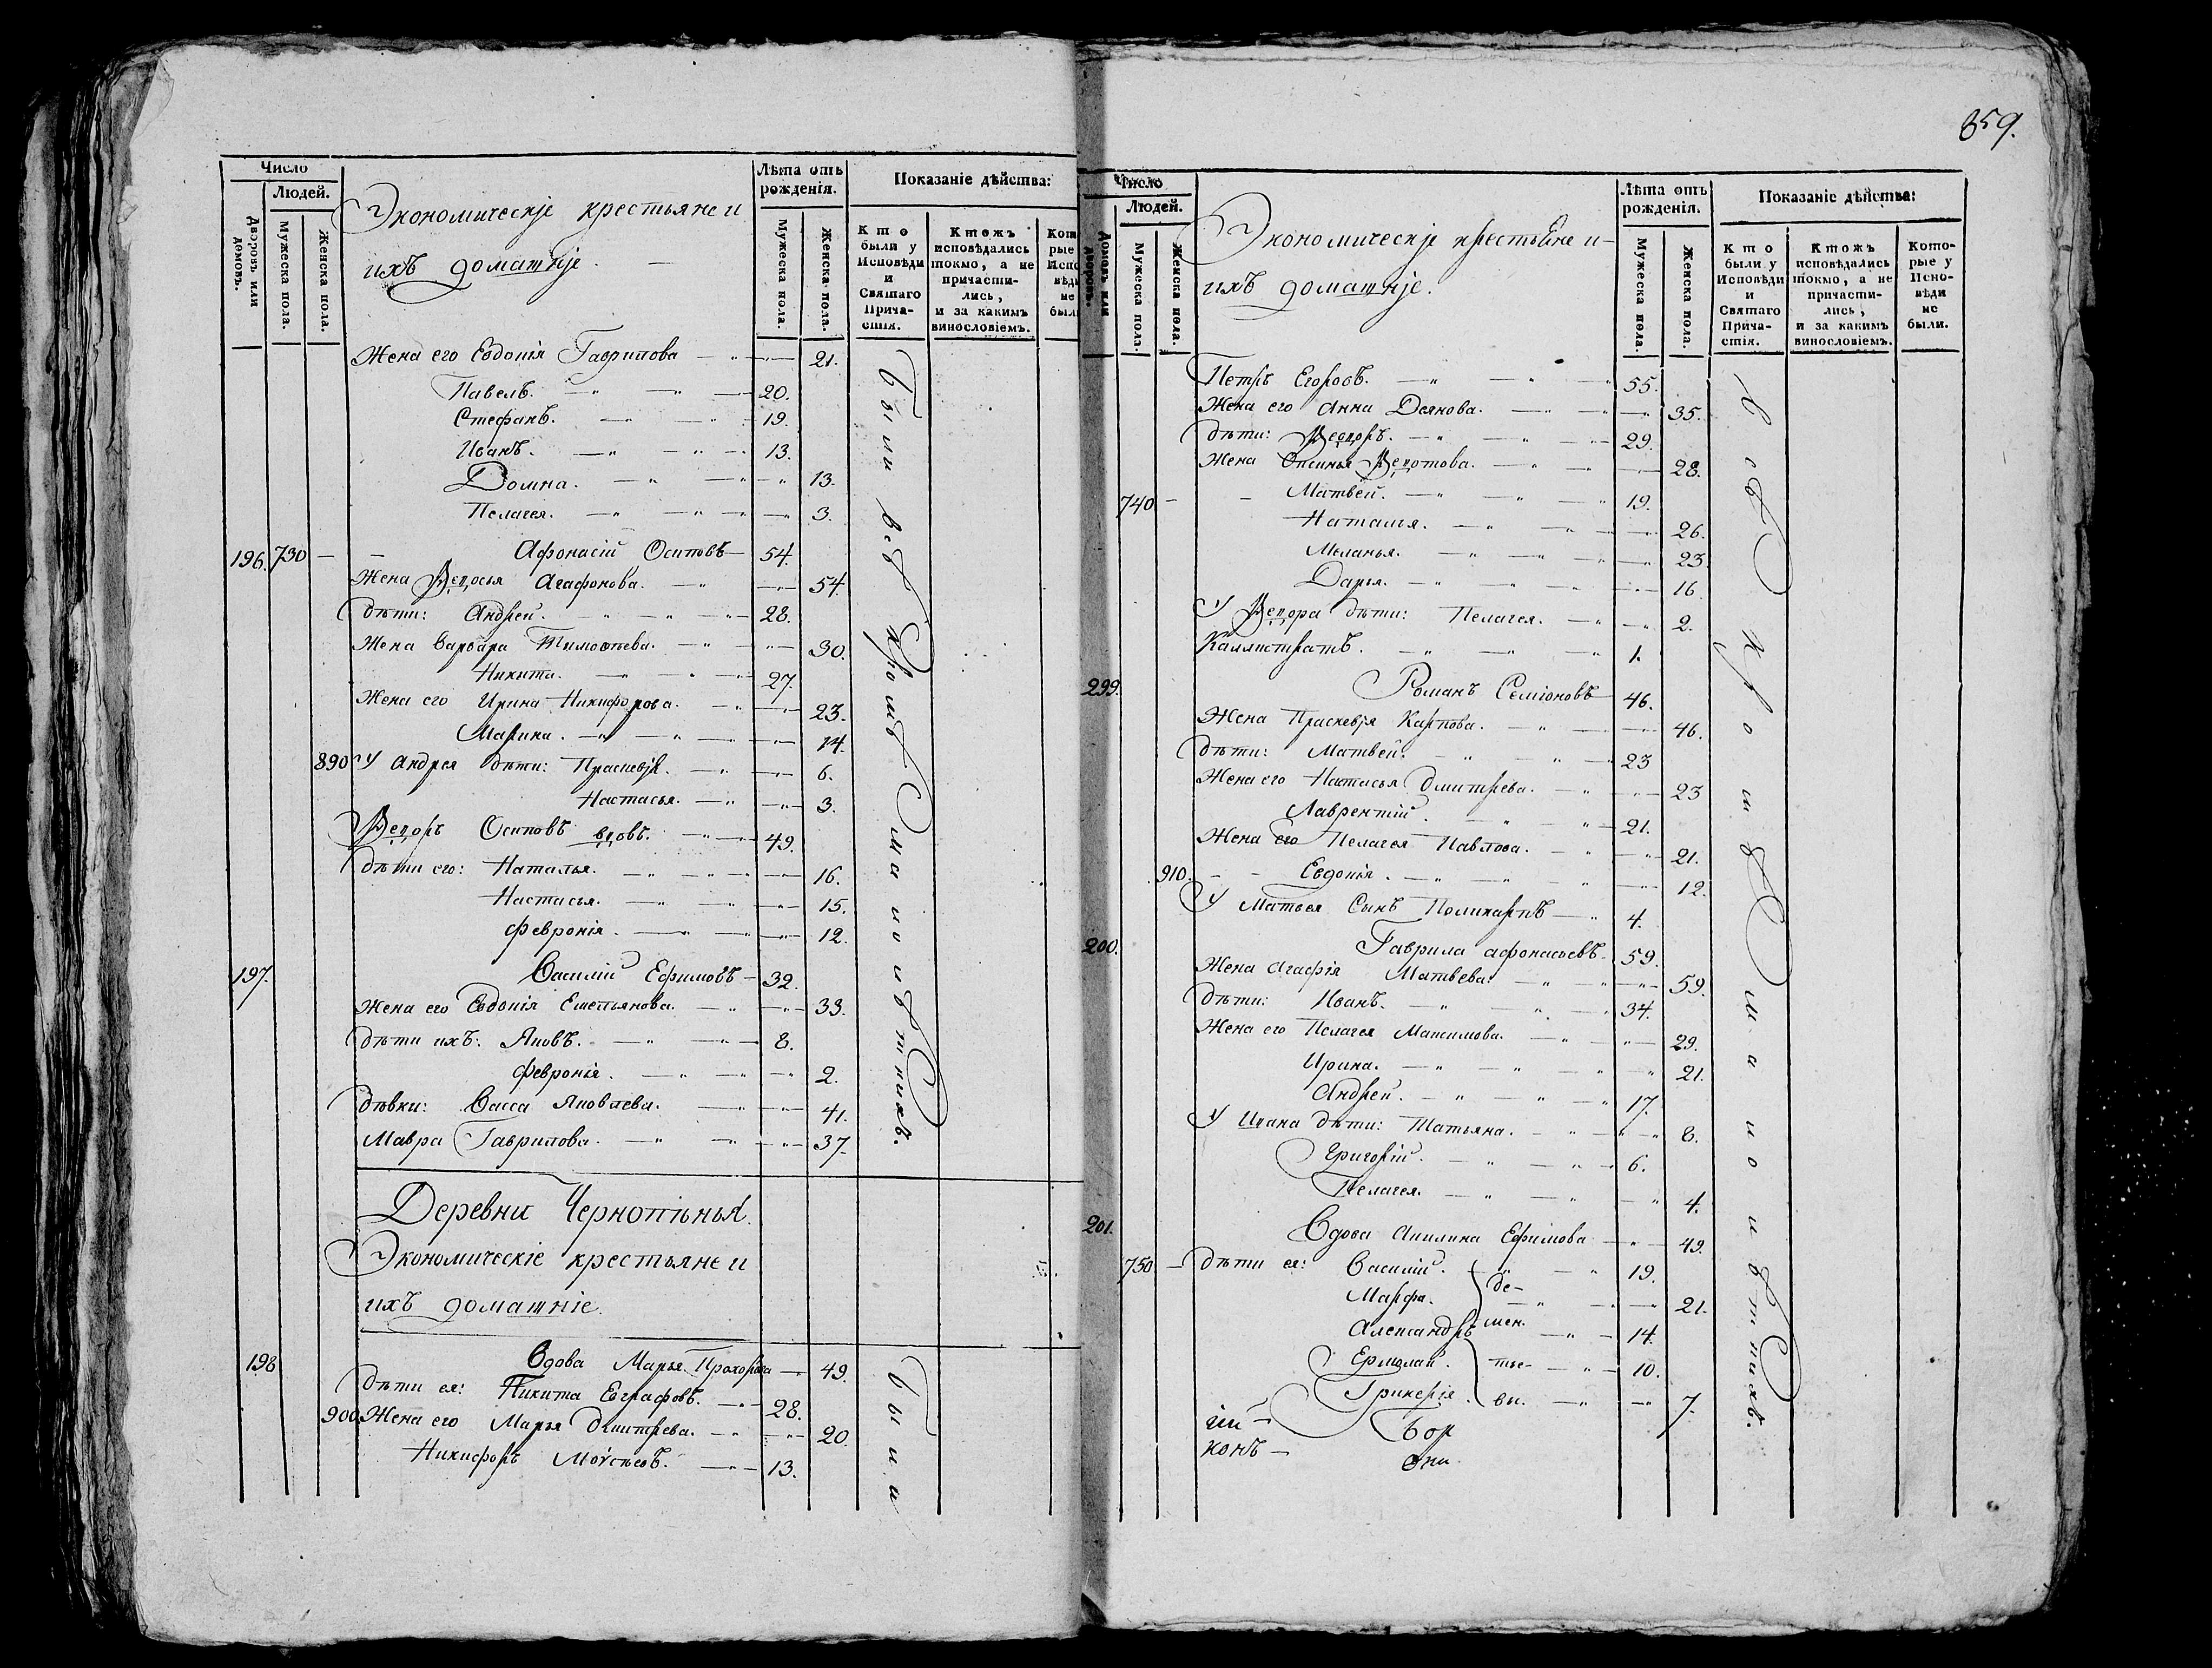 Число
Людей.
Дворовъ или домовъ.
Мужеска пола.
Женска пола.
Экономическіе крестьяне и
ихъ домашніе.
Лѣта отъ рожденія.
Мужеска пола.
Женска пола.
Показаніе дѣйства:
Кто были у Исповѣди и Святаго Прича- стія.
Ктожъ исповѣдались токмо, а не причасти- лись, и за какимъ винословіемъ.
Жена его Евдокія Гаврилова 21.
Павелъ. 20.
Стефанъ. 19.
Иванъ. 13.
Домна. 13.
Пелагея. 3.
196. 730 Афонасій Осиповъ 54.
Жена Ѳедосья Агафонова. 54.
Дѣти: Андрей. 28.
Жена Варвара Тимоѳеева. 30.
Никита. 27.
Жена его Ирина Никифорова. 23.
Марина. 14.
890 У Андрея дѣти: Праскевія. 6.
Настасья. 3.
Ѳедоръ Осиповъ вдовъ. 49.
Дѣти его: Наталья. 16.
Настасья. 15.
Февронія. 12.
197. Василій Ефимовъ 32.
Жена его Евдокія Емельянова. 33.
Дѣти ихъ: Яковъ. 8.
Февронія. 2.
Дѣвки: Васса Яковлева. 41.
Мавра Гаврилова. 37.
Были всѣ кромѣ малолѣтнихъ.
Деревни
Экономическіе крестьяне и
ихъ домашніе.
198 Вдова Марья Прохорова 49.
Дѣти ея: Никита Евграфовъ. 28.
900 Жена его Марья Дмитрева. 20.
Никифоръ Моѵсѣевъ. 13.
Были
859.
Число
Людей.
Домовъ или дворовъ.
Мужеска пола.
Женска пола.
Экономическіе крестьяне и
ихъ домашніе.
Лѣта отъ рожденія.
Мужеска пола.
Женска пола.
Показаніе дѣйства:
Кто были у Исповѣди и Святаго Прича- стія.
Ктожъ исповѣдались токмо, а не причасти- лись, и за какимъ винословіемъ.
Кото- рые у Испо- вѣди не были.
Петръ Егоровъ. 55.
Жена его Анна Деянова. 35.
Дѣти: Ѳедоръ. 29.
Жена Ѳедотова. 28.
740 Матвей. 19.
Наталья. 26.
Меланья. 23.
Дарья. 16.
У Ѳедора дѣти: Пелагея. 2.
Каллистратъ. 1.
299. Романъ Семіоновъ 46.
Жена Праскевія Карпова. 46.
Дѣти: Матвей. 23
Жена его Настасья Дмитрева. 23
Лаврентій. 21.
Жена его Пелагея Павлова. 21.
910. Евдокія. 12.
У Матвея Сынъ Поликарпъ 4.
200. Гаврила Афонасьевъ 59.
Жена Агафія Матвева. 59.
Дѣти: Иванъ. 34.
Жена его Пелагея Максимова. 29.
Ирина. 21.
Андрей. 17.
У Ивана дѣти: Татьяна. 8.
Григорій. 6.
Пелагея. 4.
201. Вдова Акилина Ефимова 49.
750 Дѣти ея: Василій. 19.
Марфа. де- 21.
Александръ мен. 14.
Ермолай. тье- 10.
Гликерія. вы. 7.
всѣ кромѣ малолѣтнихъ.
гій Бор
конъ